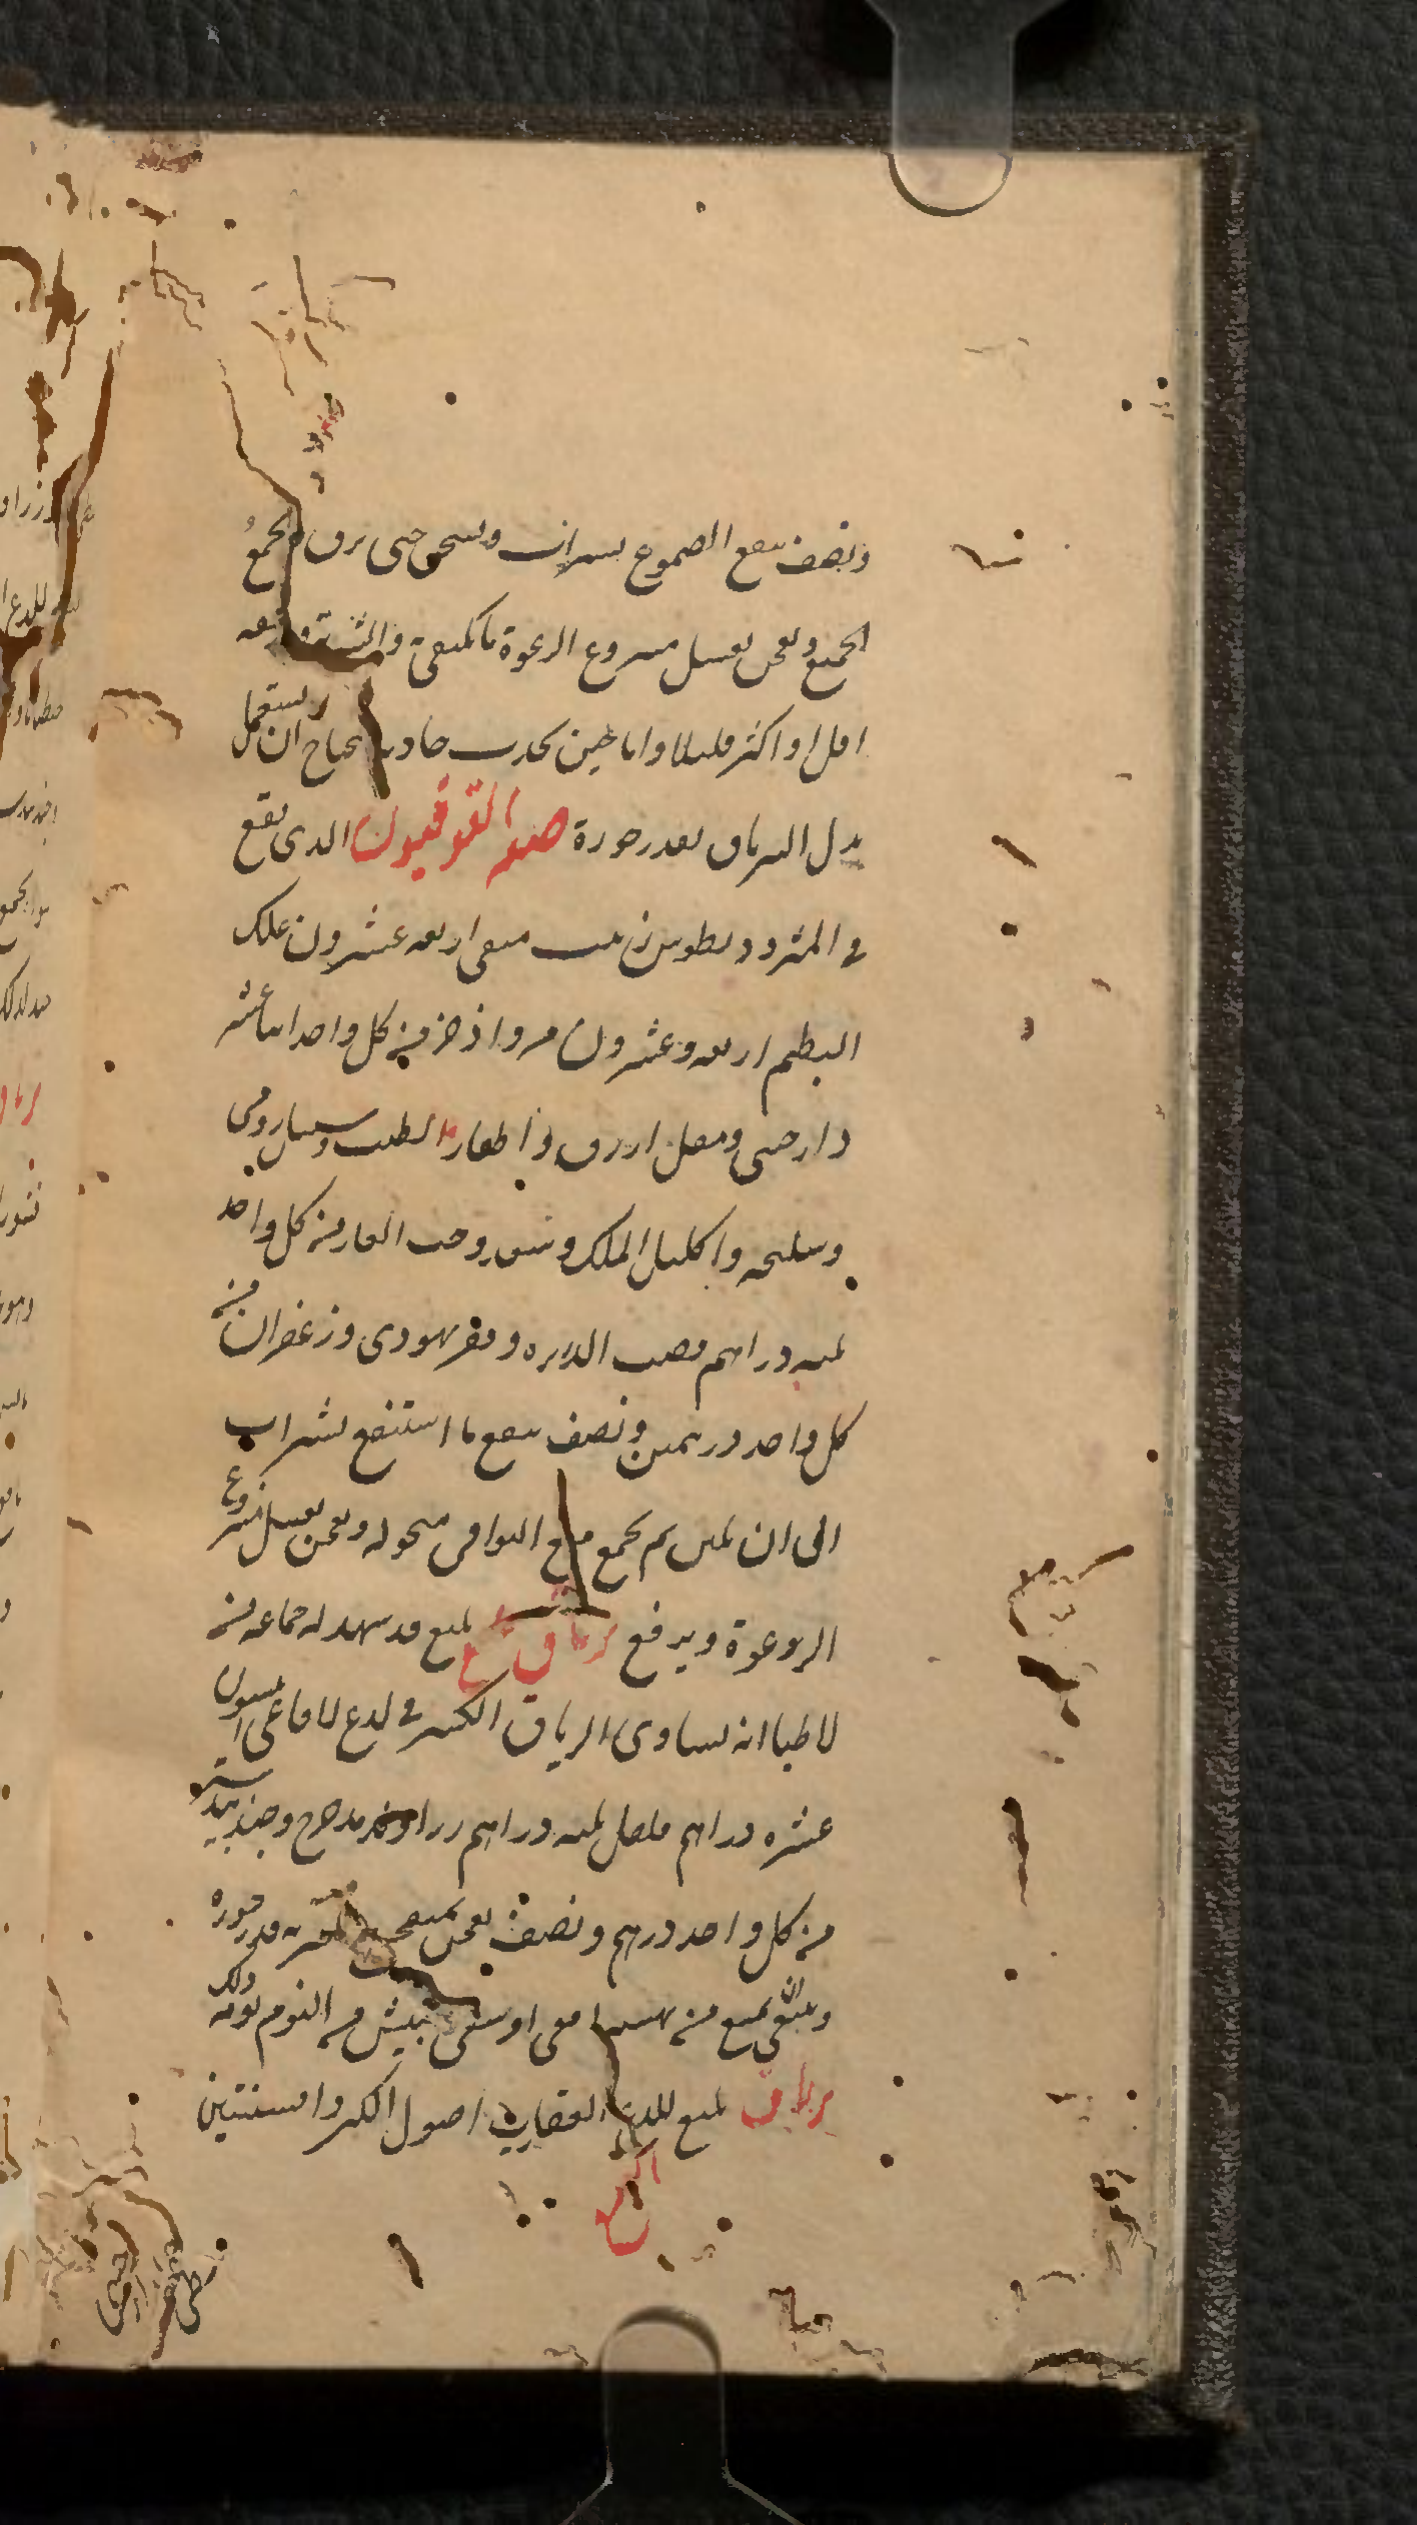 ونصف ينقع الصموغ بشراب ويسحق حتى يرق ويجمع
الجميع ويعجن بعسل منزوع الرغوة ما يكفيه والشربة منه
اقل او اكثر قليلا واما حين يحدث حادث يحتاج ان يستعمل
بدل الترياق بقدر جوزة صفة القوفيون الذي يقع
في المثروديطوس زبيب منقى اربعه عشرون علك
البطم اربعه وعشرون مر واذخر من كل واحد اثنا عشر
دارصيني ومقل ازرق واظفار الطيب وسنبل رومي
وسليخه واكليل الملك وسعد وحب الغار من كل واحد
ثلثه دراهم قصب الذريره وقفر يهودي وزعفران من
كل واحد درهمين ونصف ينقع ما استنقع بشراب
الى ان يلين ثم يجمع مع البواقي منخوله ويعجن بعسل منزوع
الرغوة ويرفع ترياق ينفع قد شهد له جماعه من
الاطبا انه يساوي الترياق الكبير في لدغ الافاعي افسون
عشره دراهم فلفل ثلثه دراهم زراوند مدحرج وجندبيدستر
من كل واحد درهم ونصف يعجن بميفختج الشربه قدر جوزة
وينفع من نهشه افعى او سقي بيش من النوم
ترياق ينفع للدغ العقارب اصول الكبر وافسنتين